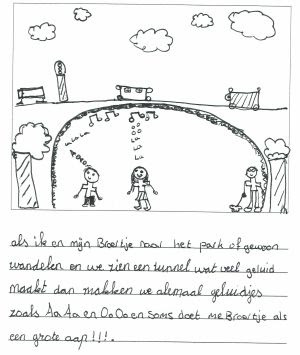 als ik en mijn Broertje naar het park of gewoon
wandelen en we zien een tunnel wat veel geluid
maakt dan makken we alemaal geluidjes
zoals Aa Aa en Oo Oo en soms doet me Broertje als
een grote aap!!!.